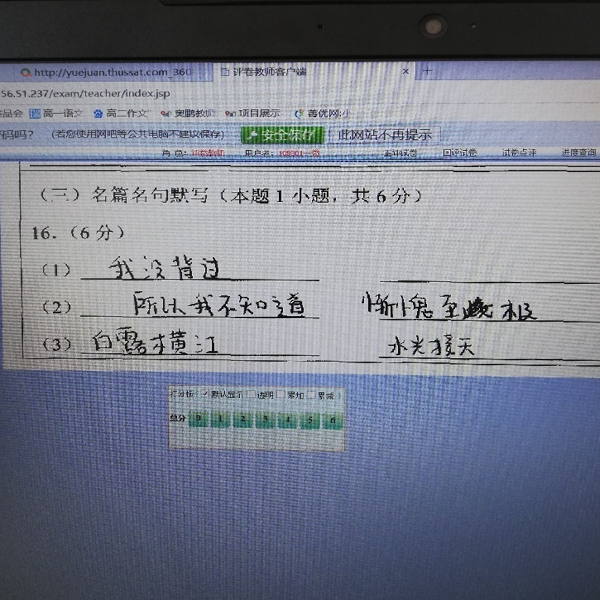 http://yuejuan.thussat.com_360 评卷教师客户端 ×
56.51.237/exam/teacher/index.jsp
高一语文 高二作文 奥鹏教师 项目展示 善优网:小
码吗? (若您使用网吧等公共电脑不建议保存) 安全保存 此网站不再提示
回评试卷 试卷点评 进度查询
(三)名篇名句默写(本题1小题,共6分)
16.(6分)
(1) 我没背过
(2) 所以我不知道 惭愧至极
(3) 白露横江 水光接天
打分板: 默认显示 透明 累加 累减
总分 0 1 2 3 4 5 6